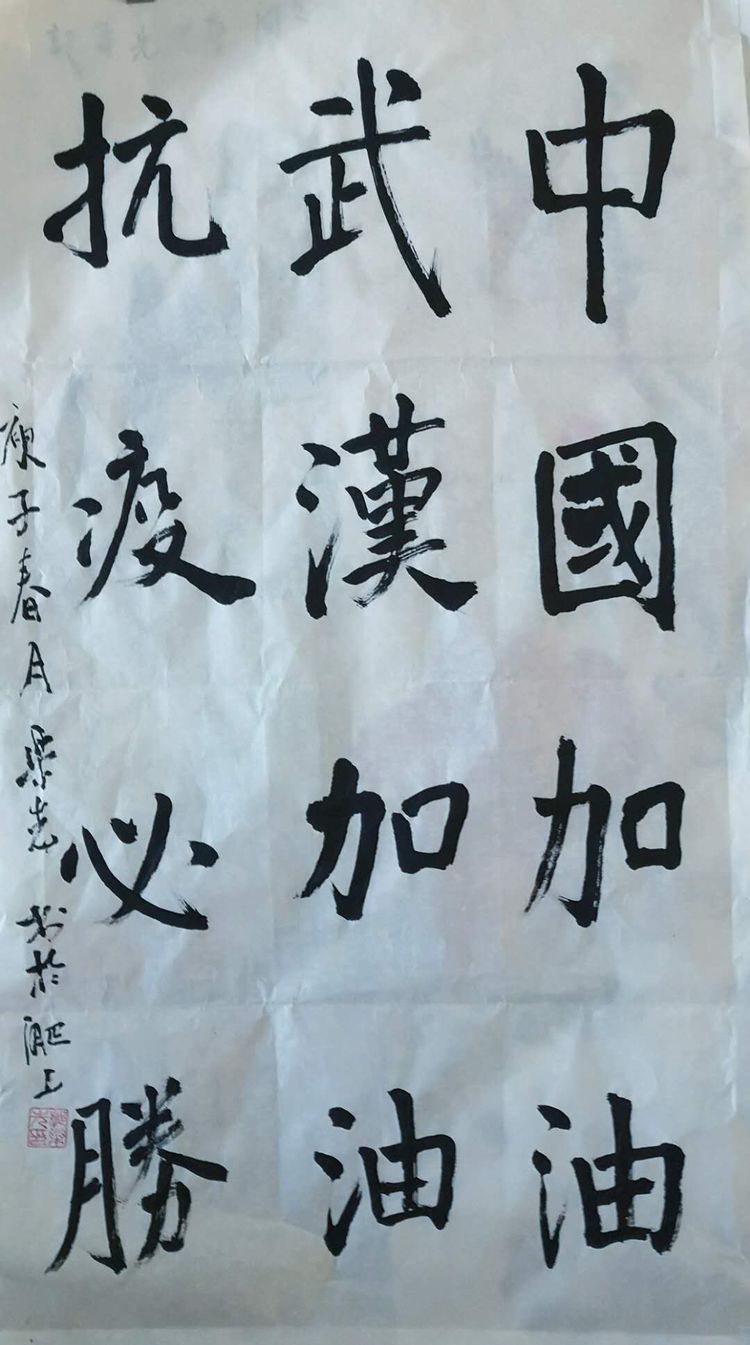 中國加油
武漢加油
抗疫必勝
庚子春月 梁志 书於淝上